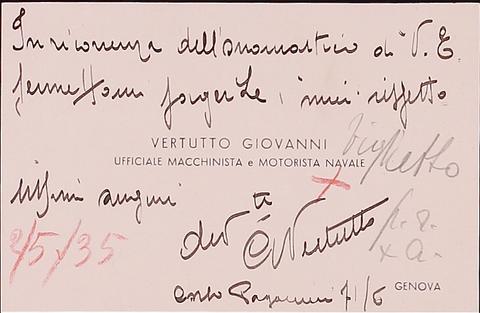 In ricorrenza dell'onomastico di V. E.
permettomi porgerLe i miei rispetto
VERTUTTO GIOVANNI
UFFICIALE MACCHINISTA e MOTORISTA NAVALE
biglietto
sissimi auguri
2/5/35
dev ti
G Vertutto
p. r.
x a.
Corso Paganini 71/6
GENOVA